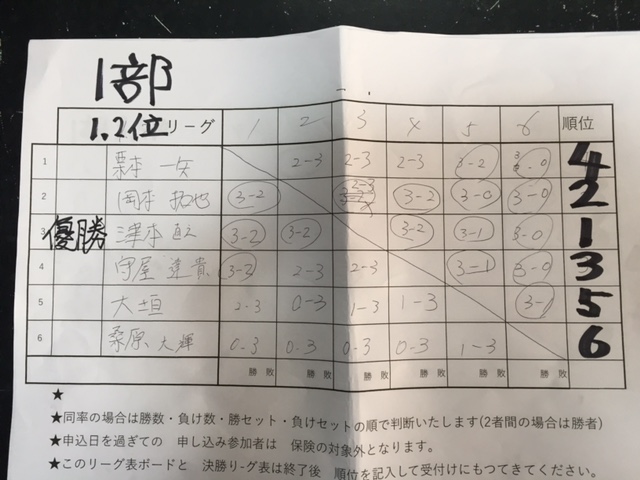 1部
1.2位リーグ 1 2 3 4 5 6 順位
1 栗本 一矢 2-3 2-3 2-3 3-2 3-0 4
2 岡本 拓也 3-2 2-3 3-2 3-0 3-0 2
優勝 3 澤本 3-2 3-2 3-2 3-1 3-0 1
4 守屋 達貴 3-2 2-3 2-3 3-1 3-0 3
5 大垣 2-3 0-3 1-3 1-3 3-1 5
6 桑原 大輝 0-3 0-3 0-3 0-3 1-3 6
勝 敗 勝 敗 勝 敗 勝 敗 勝 敗 勝 敗
★
★同率の場合は勝数・負け数・勝セット・負けセットの順で判断いたします(2者間の場合は勝者)
★申込日を過ぎての 申し込み参加者は 保険の対象外となります。
★このリーグ表ボードと 決勝リ-グ表は終了後 順位を記入して受付けにもつてきてください。